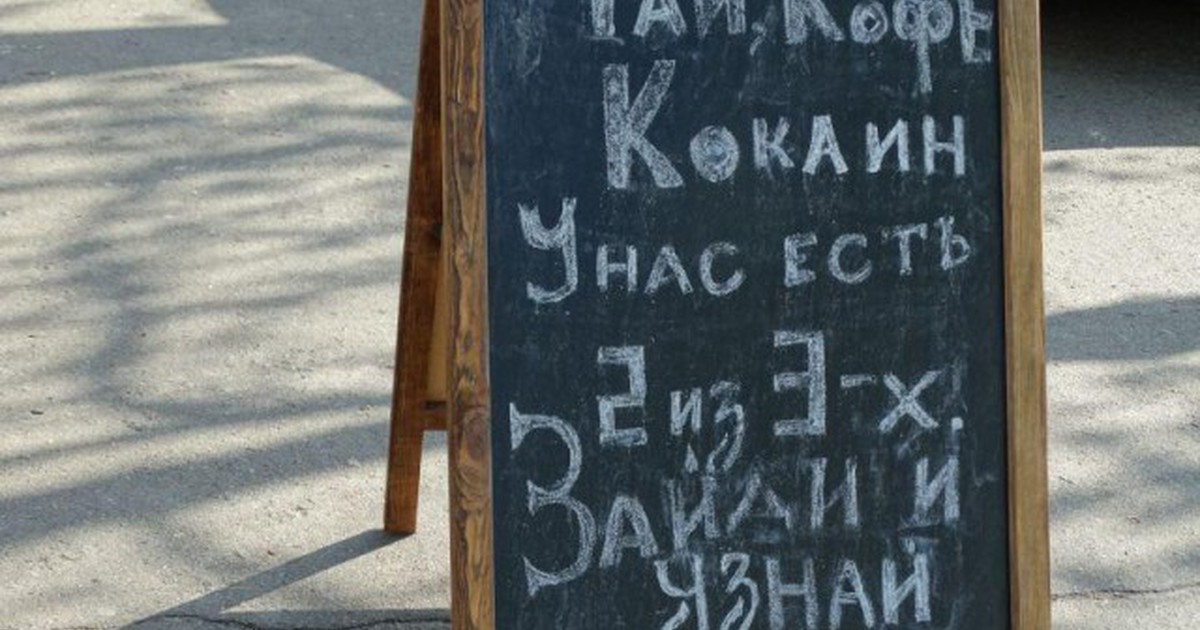 Чай, Кофе
Кокаин
У нас есть
2 из 3-х.
Зайди и
узнай